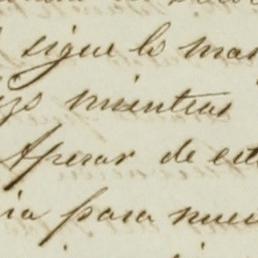 sigue lo mas
mientras
Apesar de est
ia para nues